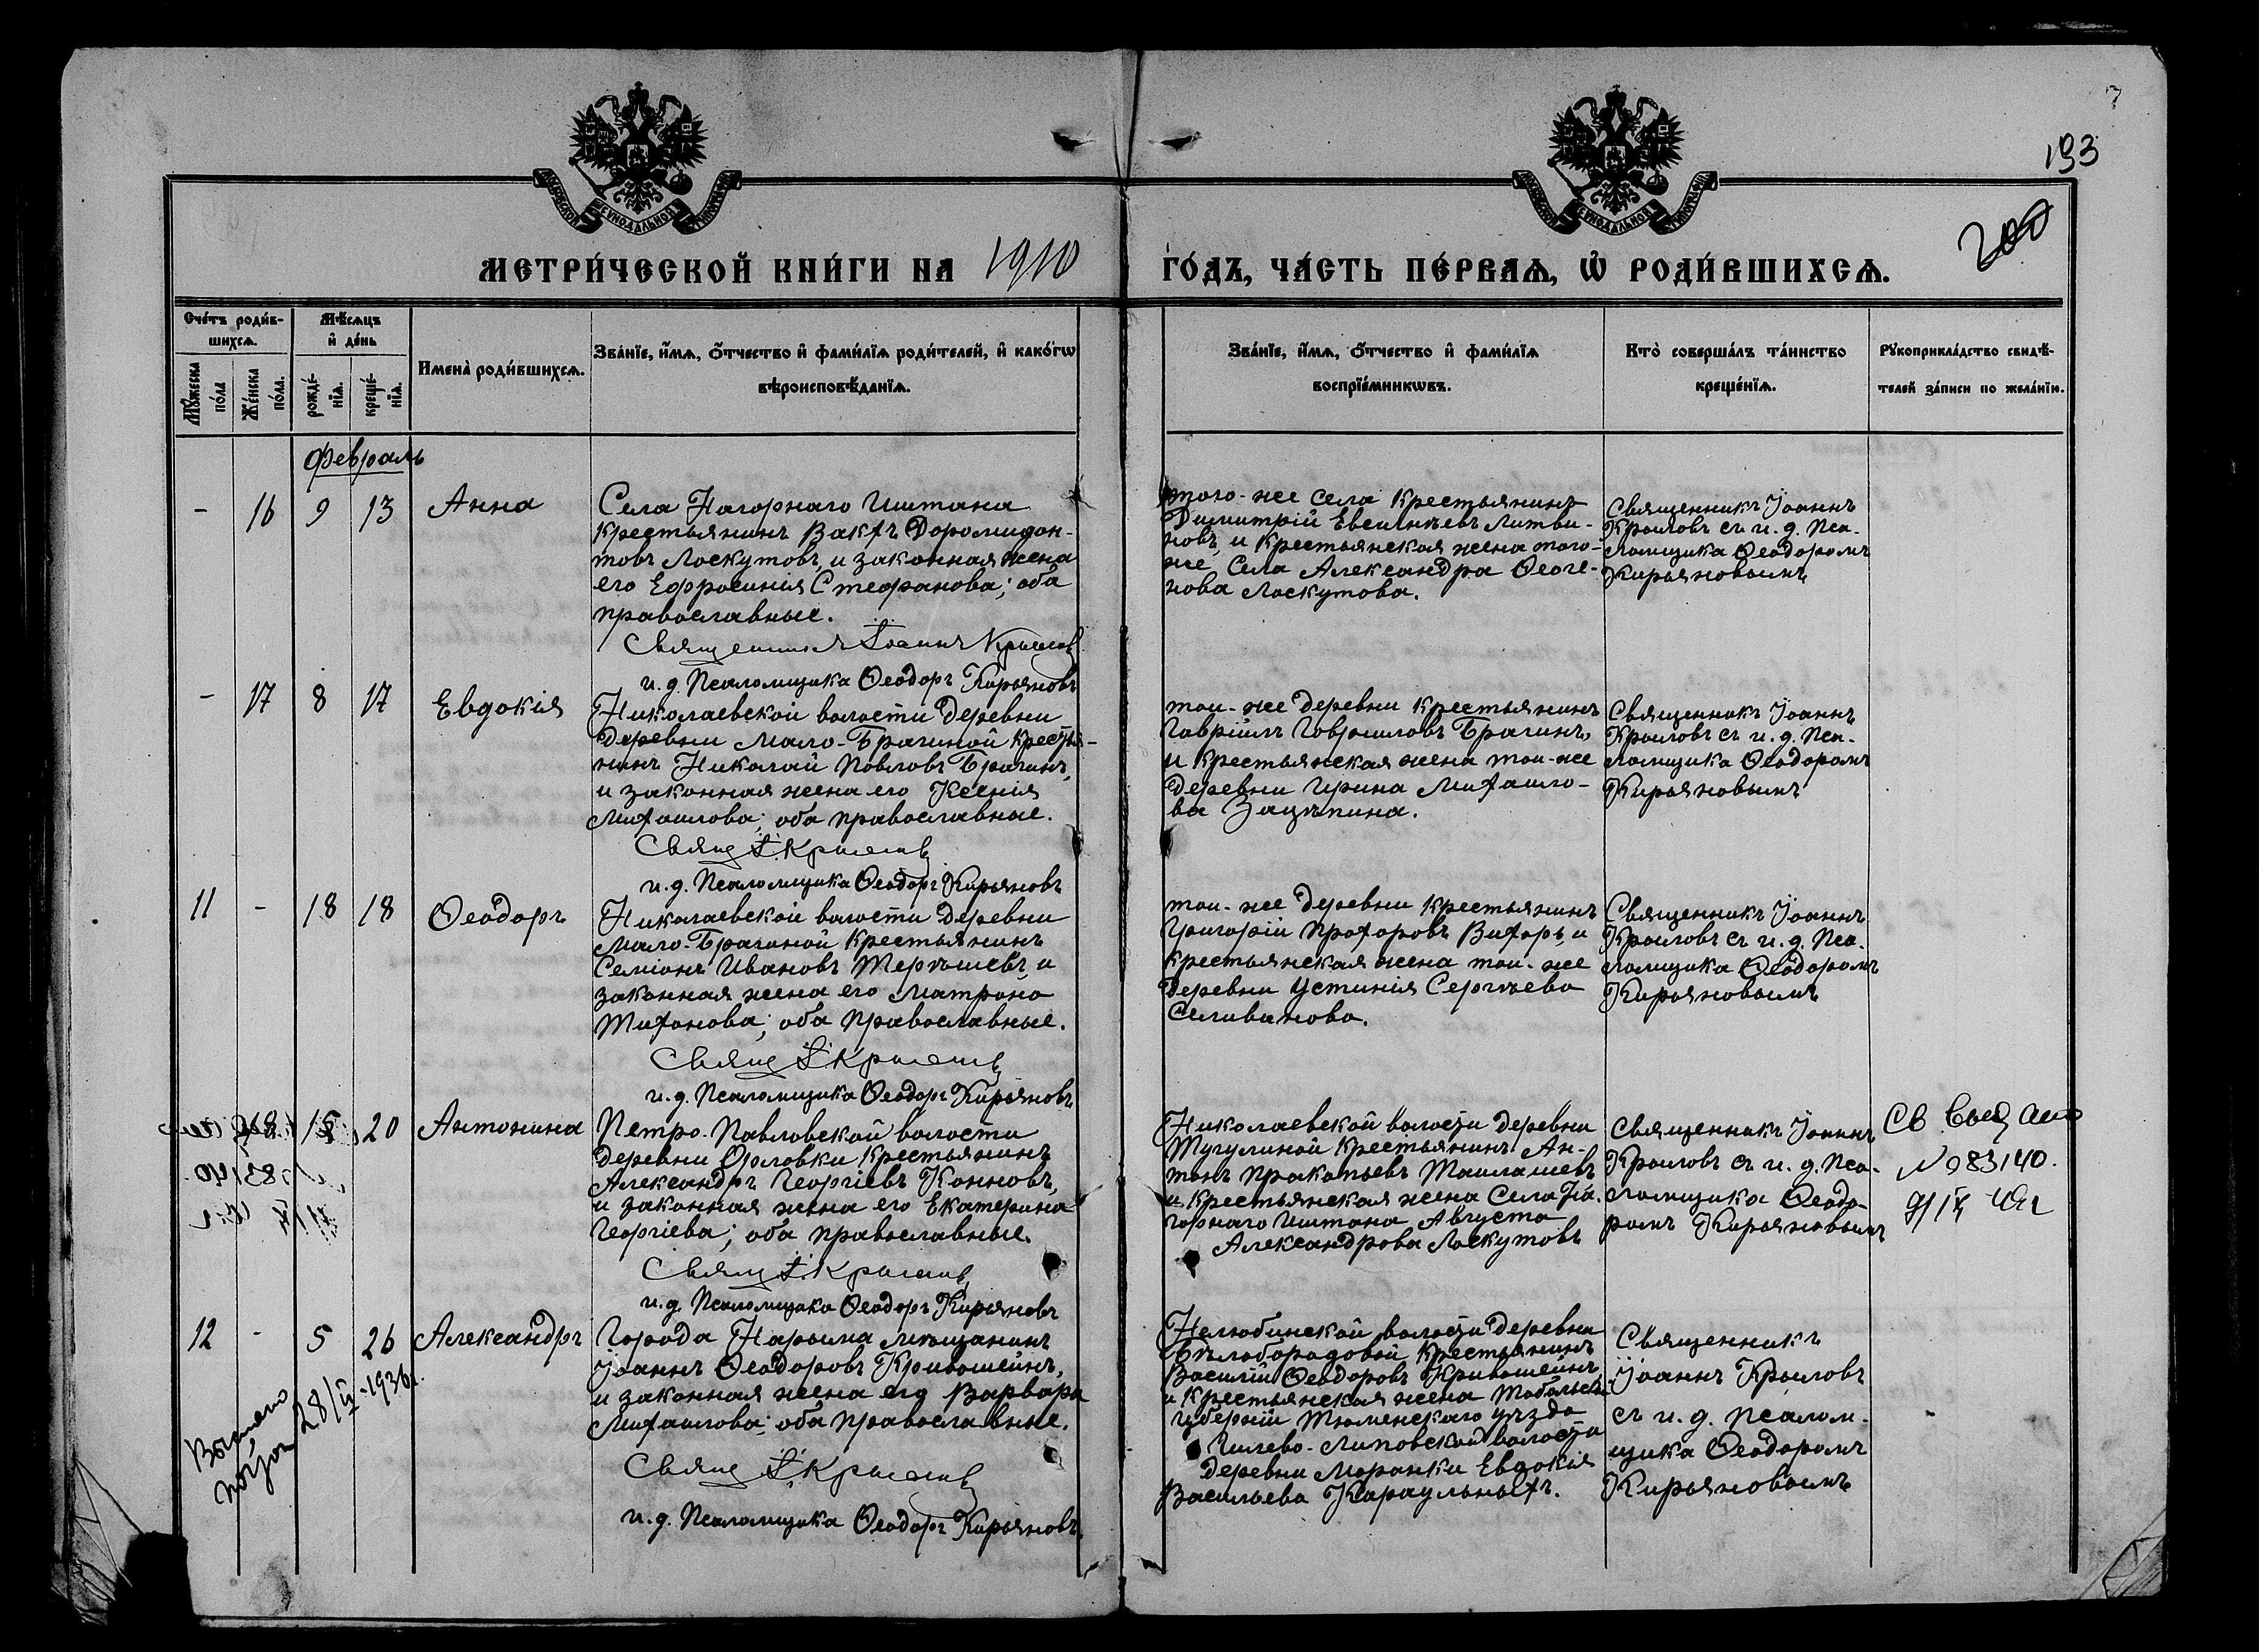 7
193
200
МЕТРИ́ЧЕСКОЙ КНИ́ГИ НА 1910 ГО́ДЪ, ЧА́СТЬ ПЕ́РВАѦ, Ѡ҆ РОДИ́ВШИХСѦ.
Сче́тъ роди́в-
шихсѧ.
Мꙋ́жеска
по́ла
Же́нска
по́ла.
Мѣ́сѧцъ
и҆ де́нь
рожде́-
нїѧ.
креще́-
нїѧ.
Имена̀ роди́вшихсѧ.
Зва́нїе, и҆́мѧ, ѻ҆́тчество и҆ фами́лїѧ роди́телей, и҆ како́гѡ
вѣроисповѣ́данїѧ.
Зва́нїе, и҆́мѧ, ѻ҆́тчество и҆ фами́лїѧ
воспрїе́мникѡвъ.
Кто̀ соверша́лъ та́инство
креще́нїѧ.
Рꙋкоприкла́дство свидѣ́-
телей за́писи по жела́нїи.
Февраль
- 16 9 13 Анна
Села Нагорнаго Иштана
крестьянинъ Вакхъ Доромидон-
товъ Лоскутовъ, и законная жена
его Ефросинія Стефанова; оба
православные.
Священникъ Іоаннъ Крыловъ
и.д. Псаломщика Ѳеодоръ Кирьяновъ
того-же села крестьянинъ
Димитрій Евсинѣевъ Литви-
новъ, и крестьянская жена того-
же села Александра Ѳеоге-
нова Лоскутова.
Священникъ Іоаннъ
Крыловъ съ и.д. Пса-
ломщика Ѳеодоромъ
Кирьяновымъ
- 17 8 17 Евдокія
Николаевской волости деревни
деревни Мало-Брагиной кресть-
нинъ Николай Павловъ Брагинъ,
и законная жена его Ксенія
Михаилова; оба православные.
Свящ І. Крыловъ
и.д. Псаломщика Ѳеодоръ Кирьяновъ
той-же деревни крестьянинъ
Гавріилъ Гавриловъ Брагинъ,
и крестьянская жена той-же
деревни Ирина Михаило-
ва Зацѣпина.
Священникъ Іоаннъ
Крыловъ съ и.д. Пса-
ломщика Ѳеодоромъ
Кирьяновымъ
11 - 18 18 Ѳеодоръ
Николаевской волости деревни
Мало-Брагиной крестьянинъ
Семіонъ Ивановъ Тергышевъ, и
законная жена его Матрона
Тихонова; оба православные.
Свящ І Крыловъ
и.д. Псаломщика Ѳеодоръ Кирьяновъ
той-же деревни крестьянинъ
Григорій Прохоровъ Вихорь, и
крестьянская жена той-же
деревни Устинія Сергѣева
Селиванова.
Священникъ Іоаннъ
Крыловъ съ и.д. Пса-
ломщика Ѳеодоромъ
Кирьяновымъ
18 15 20 Антонина
Петро-Павловской волости
деревни Орловки крестьянинъ
Александръ Георгіевъ Конновъ,
и законная жена его Екатерина
Георгіева; оба православные.
Свящ І. Крыловъ
и.д. Псаломщика Ѳеодоръ Кирьяновъ
Николаевской волости деревни
Тугулиной крестьянинъ Ан-
тонъ Прокопьевъ Таилашевъ
и крестьянская жена села На-
горнаго Иштана Августа
Александрова Лоскутовъ
Священникъ Іоаннъ
Крыловъ съ и.д. Пса-
ломщика Ѳеодо-
ромъ Кирьяновымъ
Св
№ 083140.
9/IX
12 - 5 26 Александръ
Города Нарыма мѣщанинъ
Іоаннъ Ѳеодоровъ Кривошеинъ,
и законная жена его Варвара
Михаилова; оба православные.
Свящ І. Крыловъ
и.д. Псаломщика Ѳеодоръ Кирьяновъ
Нелюбинской волости деревни
Бѣлобородовой крестьянинъ
Василій Ѳеодоровъ Кривошеинъ
и крестьянская жена Тобольск.
губерніи Тюменскаго уѣзда
Гилево-Липовской волости
деревни Моранки Евдокія
Васильева Караульныхъ.
Священникъ
Іоаннъ Крыловъ
съ и.д. псалом-
щика Ѳеодоромъ
Кирьяновымъ
28/IV-1936г.